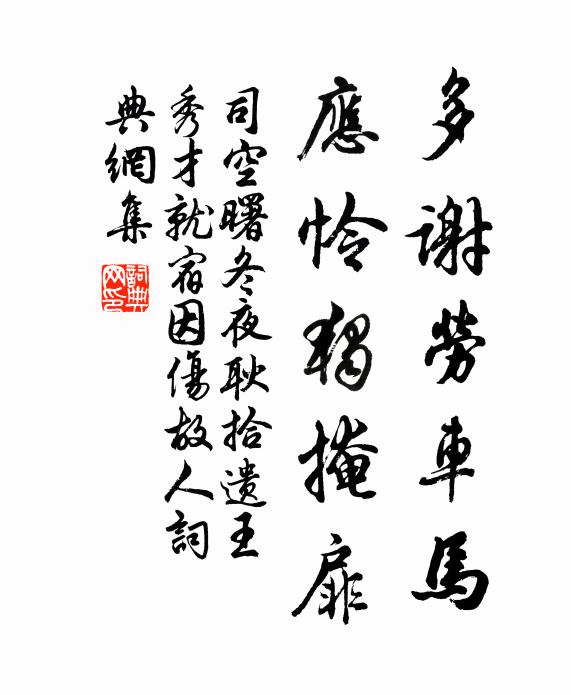 多謝勞車馬
應憐獨掩扉
司空曙冬夜耿拾遺王
秀才就宿因傷故人詞
典網集
詞典
网印